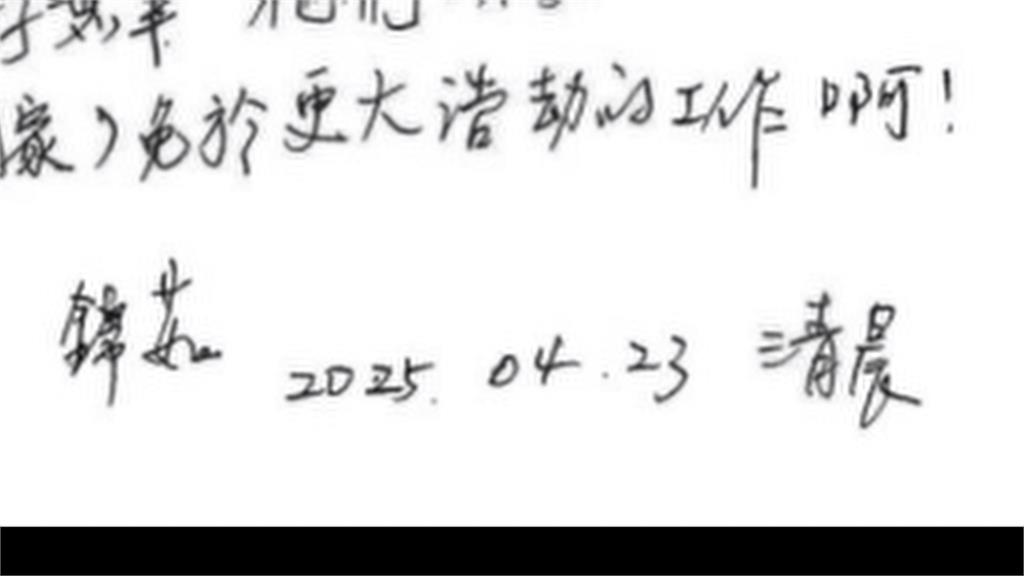 家)免於更大浩劫的工作啊!
錦茹 2025.04.23 清晨